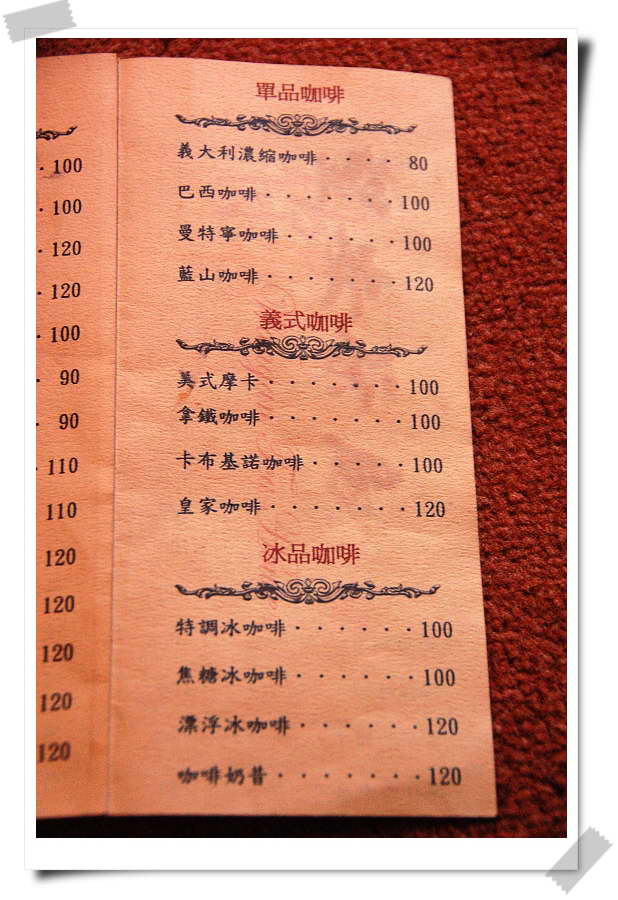 100
100
120
120
100
90
90
110
110
120
120
120
120
120
單品咖啡
義大利濃縮咖啡‧‧‧‧80
巴西咖啡‧‧‧‧‧‧‧100
曼特寧咖啡‧‧‧‧‧‧100
藍山咖啡‧‧‧‧‧‧‧120
義式咖啡
美式摩卡‧‧‧‧‧‧‧100
拿鐵咖啡‧‧‧‧‧‧‧100
卡布基諾咖啡‧‧‧‧‧100
皇家咖啡‧‧‧‧‧‧‧120
冰品咖啡
特調冰咖啡‧‧‧‧‧‧100
焦糖冰咖啡‧‧‧‧‧‧100
漂浮冰咖啡‧‧‧‧‧‧120
咖啡奶昔‧‧‧‧‧‧‧120